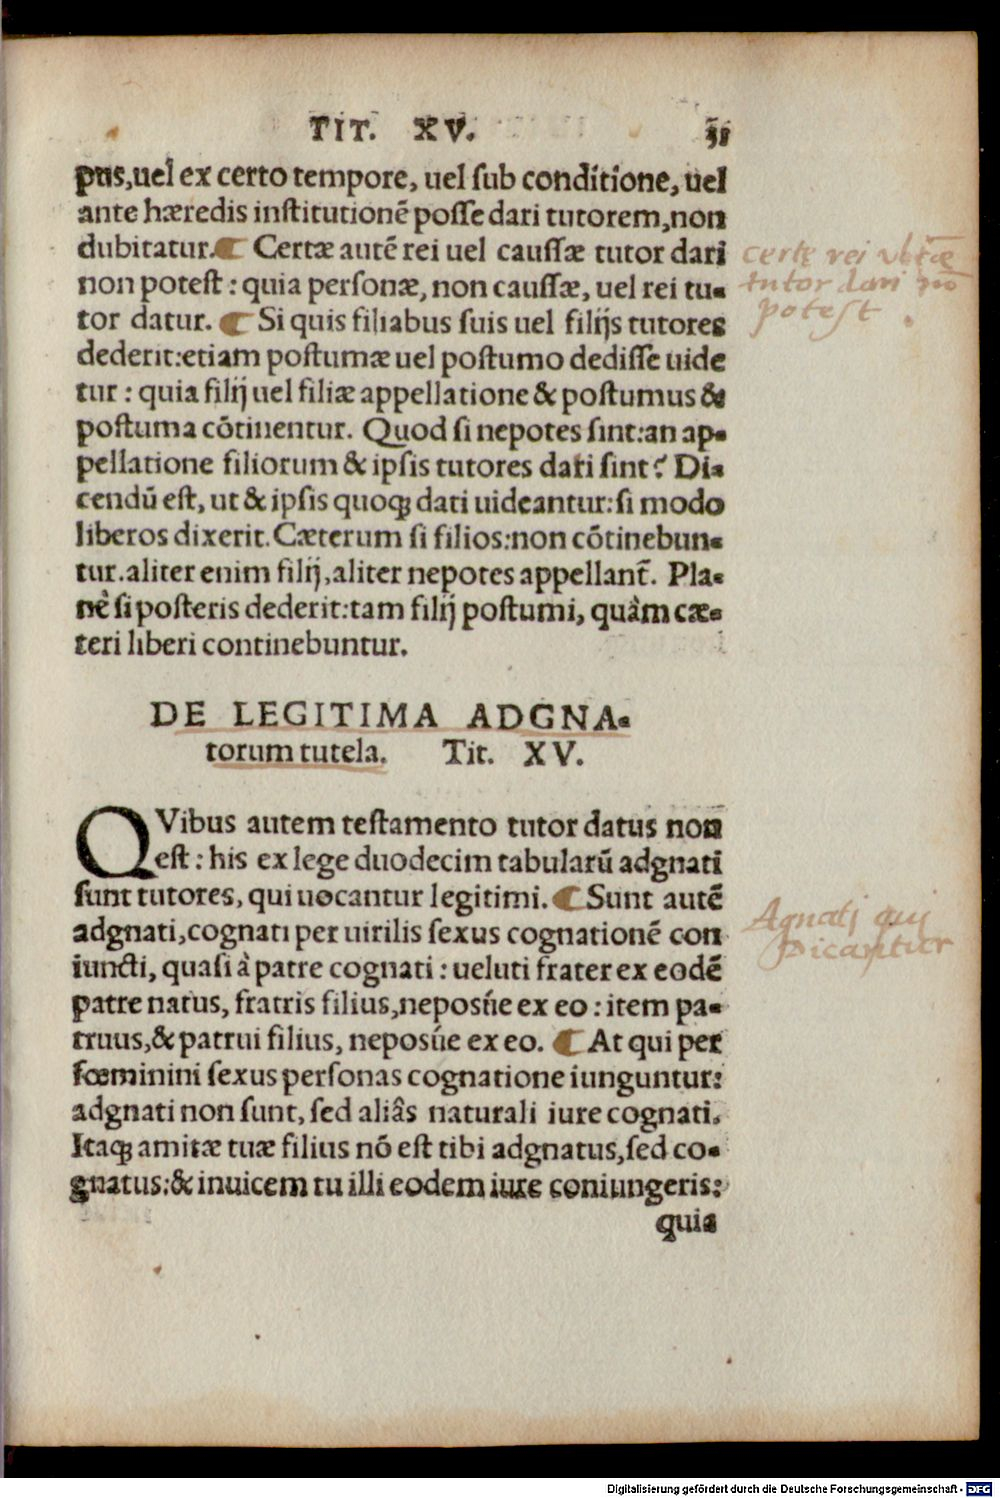 TIT. XV.
pus,uel ex certo tempore, uel sub conditione, uel
ante hæredis institutionē posse dari tutorem,non
dubitatur.¶ Certæ autē rei uel caussæ tutor dari
non potest : quia personæ, non caussæ, uel rei tu-
tor datur. ¶ Si quis filiabus suis uel filijs tutores
dederit:etiam postumæ uel postumo dedisse uide
tur : quia filij uel filiæ appellatione & postumus &
postuma cōtinentur. Quod si nepotes sint:an ap-
pellatione filiorum & ipsis tutores dati sint? Di-
cendū est, ut & ipsis quoqȝ dati uideantur:si modo
liberos dixerit.Cæterum si filios:non cōtinebun-
tur.aliter enim filij,aliter nepotes appellant̄. Pla-
nè si posteris dederit:tam filij postumi, quàm cæ-
teri liberi continebuntur.
certe rei vel
tutor dari nō
potest .
DE LEGITIMA ADGNA-
torum tutela. Tit. XV.
QVibus autem testamento tutor datus non
est : his ex lege duodecim tabularū adgnati
sunt tutores, qui uocantur legitimi.¶ Sunt autē
adgnati,cognati per uirilis sexus cognationē con
iuncti, quasi à patre cognati : ueluti frater ex eodē
patre natus, fratris filius,neposúe ex eo : item pa-
truus,& patrui filius, neposúe ex eo. ¶ At qui per
fœminini sexus personas cognatione iunguntur:
adgnati non sunt, sed aliâs naturali iure cognati.
Itaqȝ amitæ tuæ filius nō est tibi adgnatus,sed co-
gnatus:& inuicem tu illi eodem iure coniungeris:
quia
Agnatj quj
Dicantur
Digitalisierung gefördert durch die Deutsche Forschungsgemeinschaft - DFG